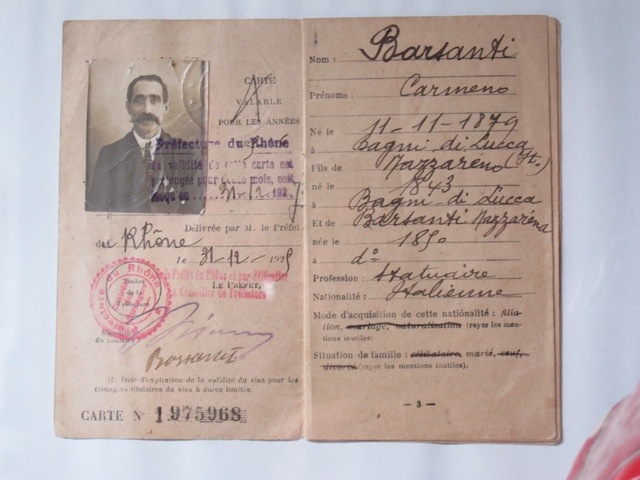 CARTE
VALABLE
POUR LES ANNÉES
Préfecture du Rhône
La validité de cette carte est
prolongée pour mois, soit
jusqu'au 31-12-1927
Délivrée par M. le Préfet
du Rhône
le 31-12-
LE PRÉFET,
Préfecture du Rhône
Barsanti
(1) Date d'expiration de la validité du visa pour les
étrangers titulaires de visa à durée limitée.
CARTE N° 1975968
Nom : Barsanti
Prénoms : Carmeno
Né le 11-11-1879
à Bagni di Lucca (It.)
Fils de Nazzareno
né le 1843
à Bagni di Lucca
Et de Barsanti Nazzarena
née le 1850
à d°
Profession : Statuaire
Nationalité : Italienne
Mode d'acquisition de cette nationalité : filia-
tion, mariage, naturalisation (rayer les men-
tions inutiles)
Situation de famille : célibataire, marié, veuf,
divorcé (rayer les mentions inutiles).
— 3 —